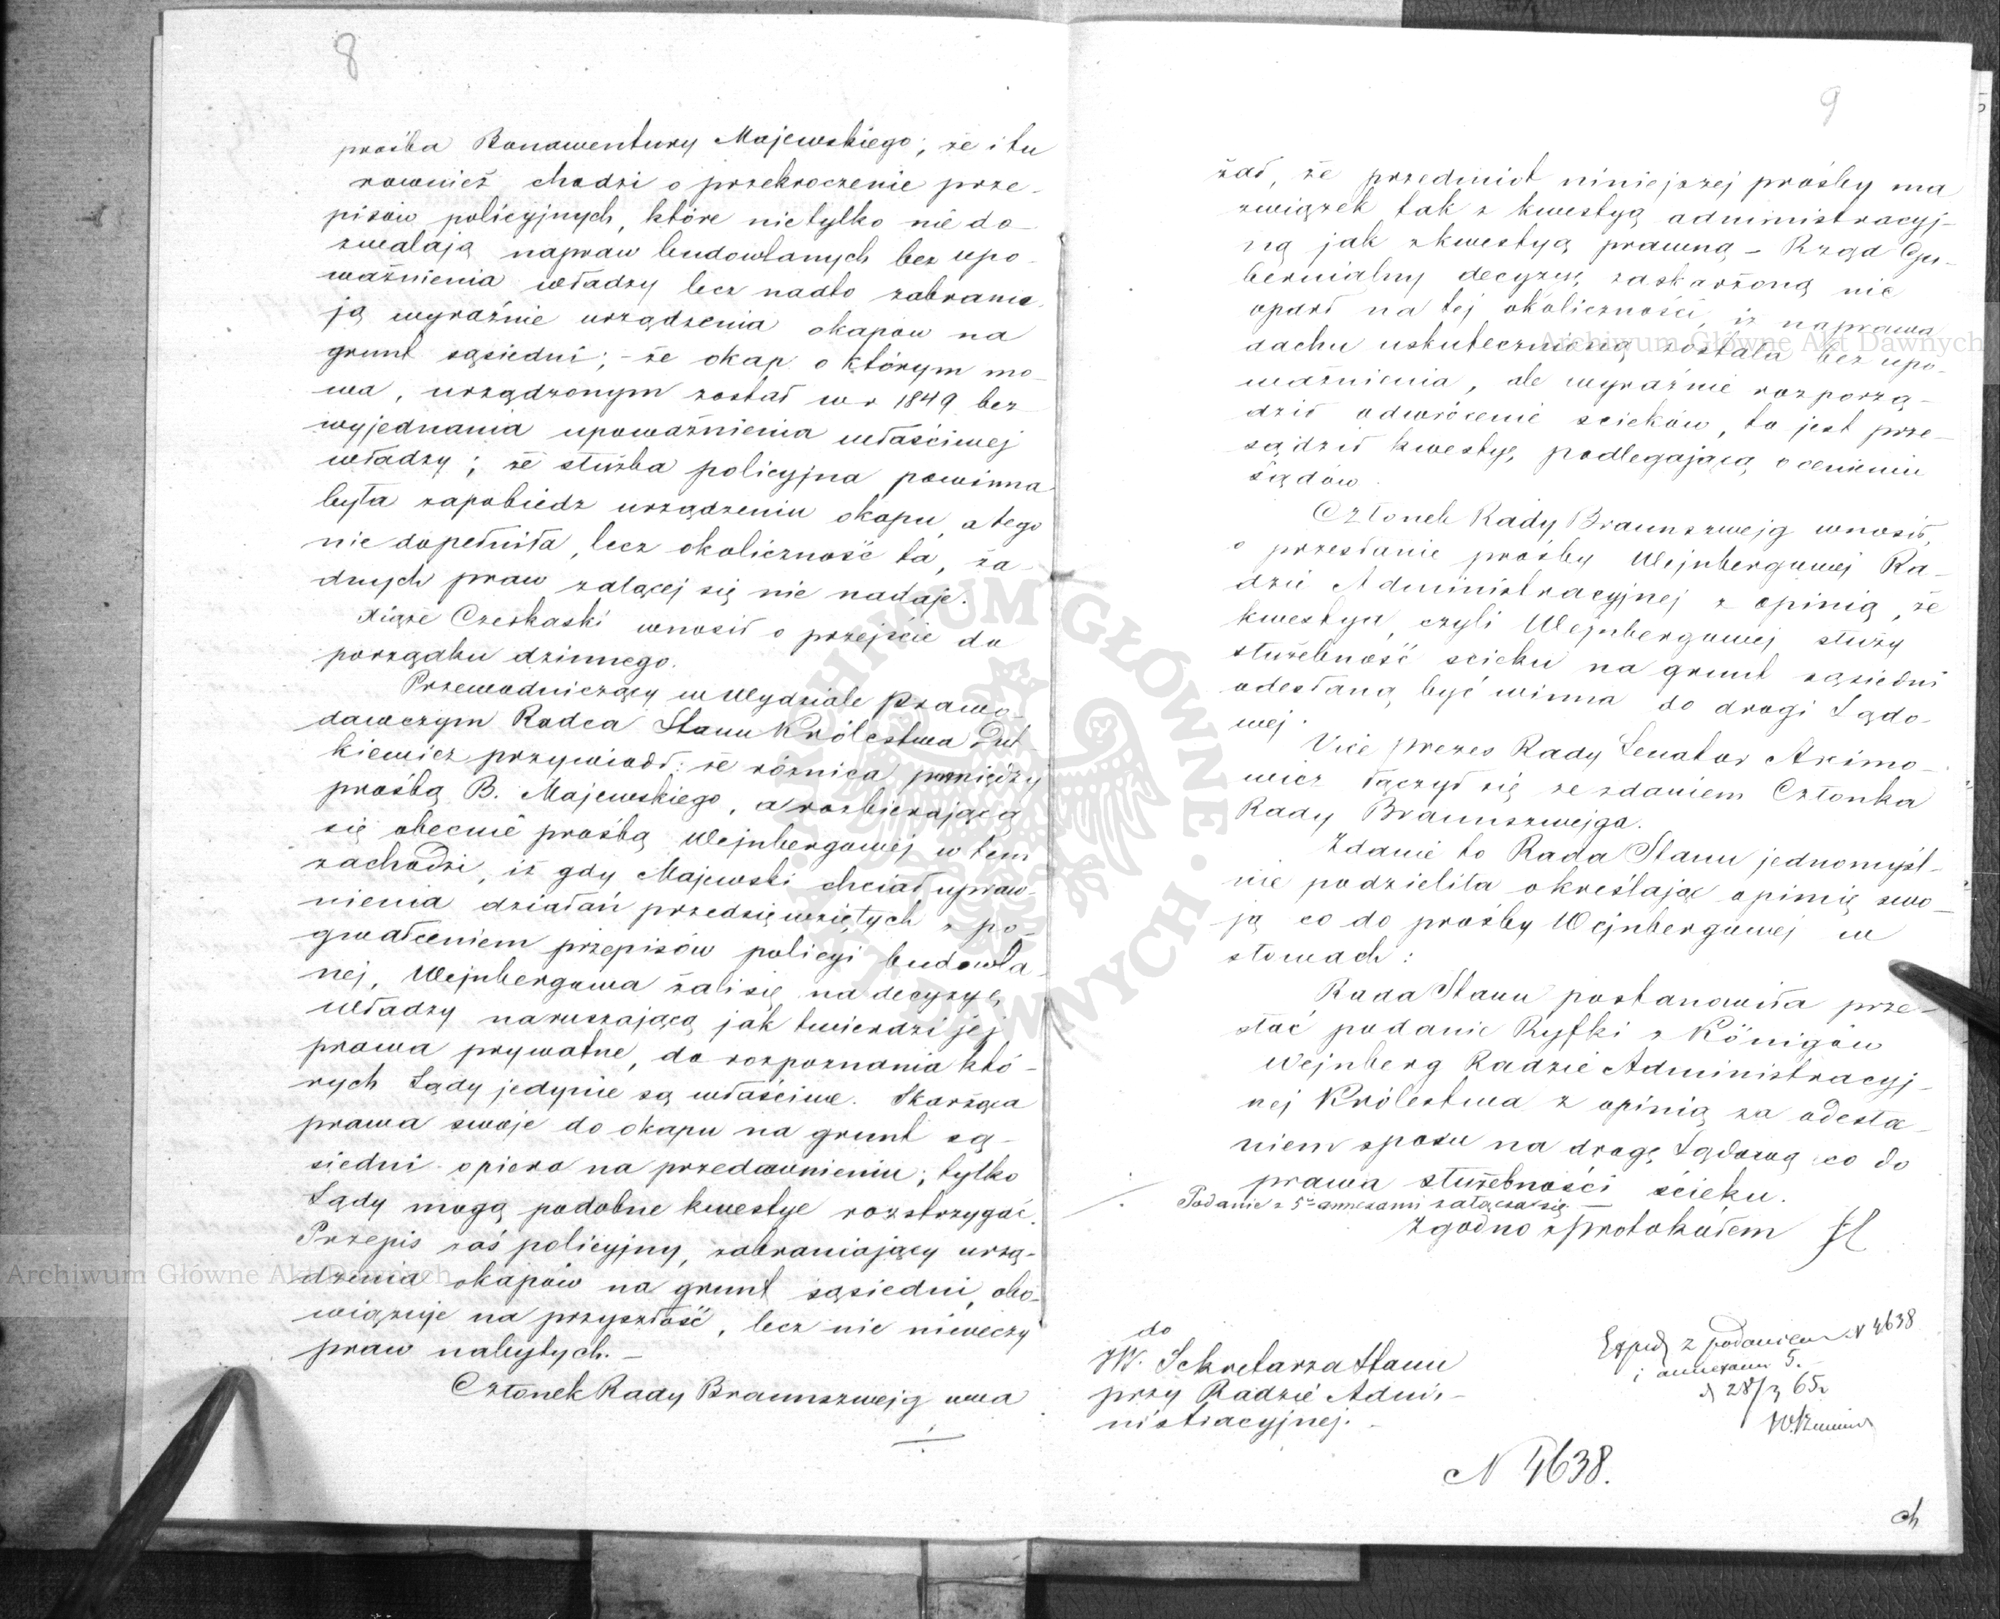 8
prośba Bonawentury Majewskiego; że i tu
rownież chodzi o przekroczenie prze-
pisów policyjnych, które nietylko nie do-
zwalają napraw budowlanych bez upo-
ważnienia władzy lecz nadto zabrania-
ją wyraźnie urządzenia okapów na
grunt sąsiedni; - że okap o którym mo-
wa, urządzonym został w r 1849 bez
wyjednania upoważnienia właściwej
władzy; że służba policyjna powinna
była zapobiedz urządzeniu okapu, a tego
nie dopełniła, lecz okoliczność ta, ża-
dnych praw żalącej się nie nadaje.
Xiąże Czerkaski wnosił o przejście do
porządku dziennego.
Przewodniczący w Wydziale Prawo-
dawczym Radca Stanu Królestwa Dut-
kiewicz przywiodł: że różnica pomiędzy
prośbą B. Majewskiego, a rozbierającą
się obecnie prośbą Wejnbergowej w tem
zachodzi, iż gdy Majewski chciał upraw-
nienia działań przedsięwziętych z po-
gwałceniem przepisów policyi budowla-
nej, Wejnbergowa żali się na decyzyę
władzy naruszającą jak twierdzi jej
prawa prywatne, do rozpoznania któ-
rych Sądy jedynie są właściwe. Skarżąca
prawa swoje do okapu na grunt są-
siedni opiera na przedawnieniu; tylko
Sądy mogą podobne kwestye rozstrzygać.
Przepis zaś policyjny, zabraniający urzą-
dzenia okapów na grunt sąsiedni, obo-
wiązuje na przyszłość, lecz nie niweczy
praw nabytych. -
Członek Rady Braunszwejg uwa
9
żał, że przedmiot niniejszej prośby ma
związek tak z kwestyą administracyj-
ną jak z kwestyą prawną - Rząd Gu-
bernialny decyzyę zaskarżoną nie
oparł na tej okoliczności, iż naprawa
dachu uskutecznioną została bez upo-
ważnienia, ale wyraźnie rozporzą-
dził odwrócenie ścieków, to jest prze-
sądził kwestyę, podlegającą ocenieniu
Sądów.
Członek Rady Braunszwejg wnosił,
o przesłanie prośby Wejnbergowej Ra-
dzie Administracyjnej z opinią, że
kwestya, czyli Wejnbergowej służy
służebność ścieku na grunt sąsiedni
odesłaną być winna do drogi Sądo-
wej.
Vice Prezes Rady Senator Arcimo-
wicz łączył się ze zdaniem Członka
Rady Braunszwejga.
Zdanie to Rada Stanu jednomyśl-
nie podzieliła określając opinię swo-
ją co do prośby Wejnbergowej w
słowach:
Rada Stanu postanowiła prze-
słać podanie Ryfki z Königów
Wejnberg Radzie Administracyj-
nej Królestwa z opinią za odesła-
niem sporu na drogę Sądową co do
prawa służebności ścieku.
Podanie z 5ma annexami załącza się
Zgodno z Protokułem
do
JW. Sekretarza Stanu
przy Radzie Admi-
nistracyjnej. -
Exped z podaniem N 4638
i annexami 5.
d 28/3 65r
N 4638.
ch
Archiwum Główne Akt Dawnych
Archiwum Główne Akt Dawnych
ARCHIWUM GŁÓWNE AKT DAWNYCH